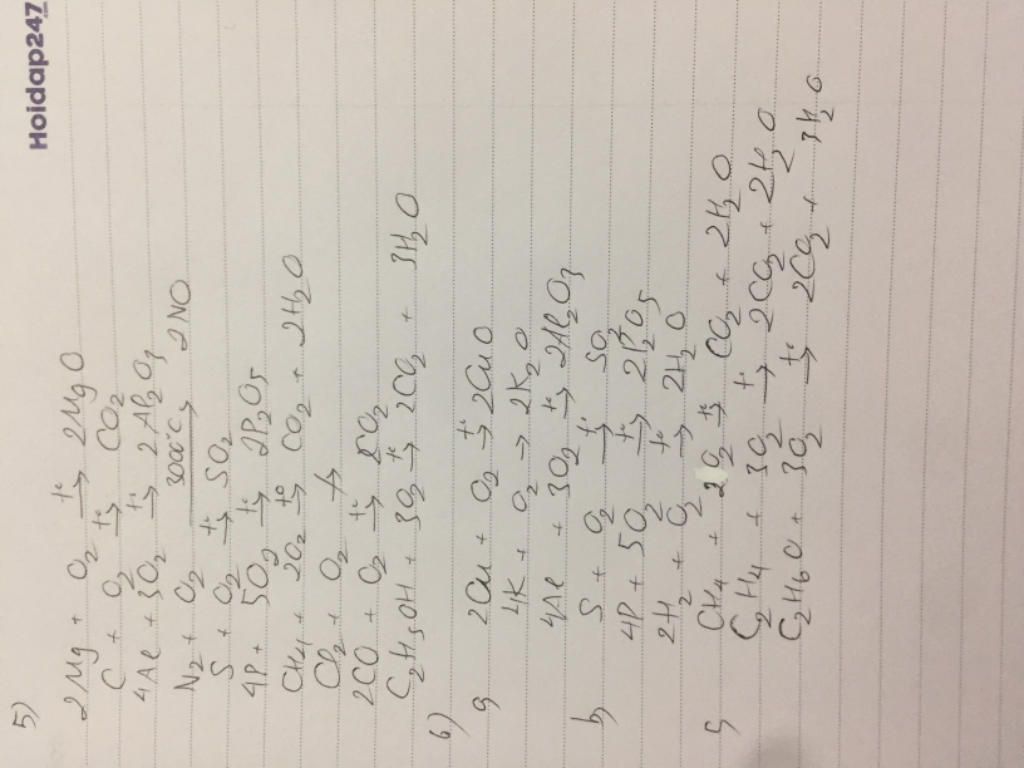 Hoidap247
5)
2Mg + O₂ →t° 2MgO
C + O₂ →t° CO₂
4Al + 3O₂ →t° 2Al₂O₃
N₂ + O₂ →3000°C 2NO
S + O₂ →t° SO₂
4P + 5O₂ →t° 2P₂O₅
CH₄ + 2O₂ →t° CO₂ + 2H₂O
Cl₂ + O₂ ↛
2CO + O₂ →t° 2CO₂
C₂H₅OH + 3O₂ →t° 2CO₂ + 3H₂O
6)
a, 2Cu + O₂ →t° 2CuO
4K + O₂ → 2K₂O
4Al + 3O₂ →t° 2Al₂O₃
b, S + O₂ →t° SO₂
4P + 5O₂ →t° 2P₂O₅
2H₂ + O₂ →t° 2H₂O
c, CH₄ + 2O₂ →t° CO₂ + 2H₂O
C₂H₄ + 3O₂ →t° 2CO₂ + 2H₂O
C₂H₆O + 3O₂ →t° 2CO₂ + 3H₂O